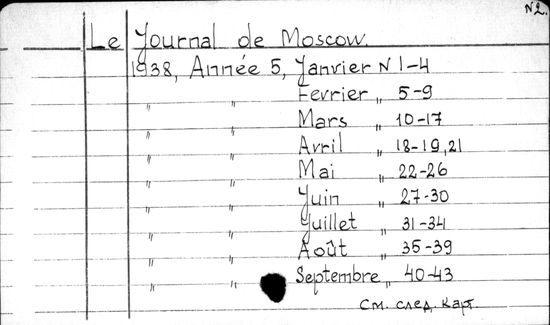 N2.
Le Journal de Moscow.
1938, Année 5, Janvier N 1-4
" " Fevrier " 5-9
" " Mars " 10-17
" " Avril " 18-19, 21
" " Mai " 22-26
" " Juin " 27-30
" " Juillet " 31-34
" " Août " 35-39
" " Septembre " 40-43
См. след. карт.